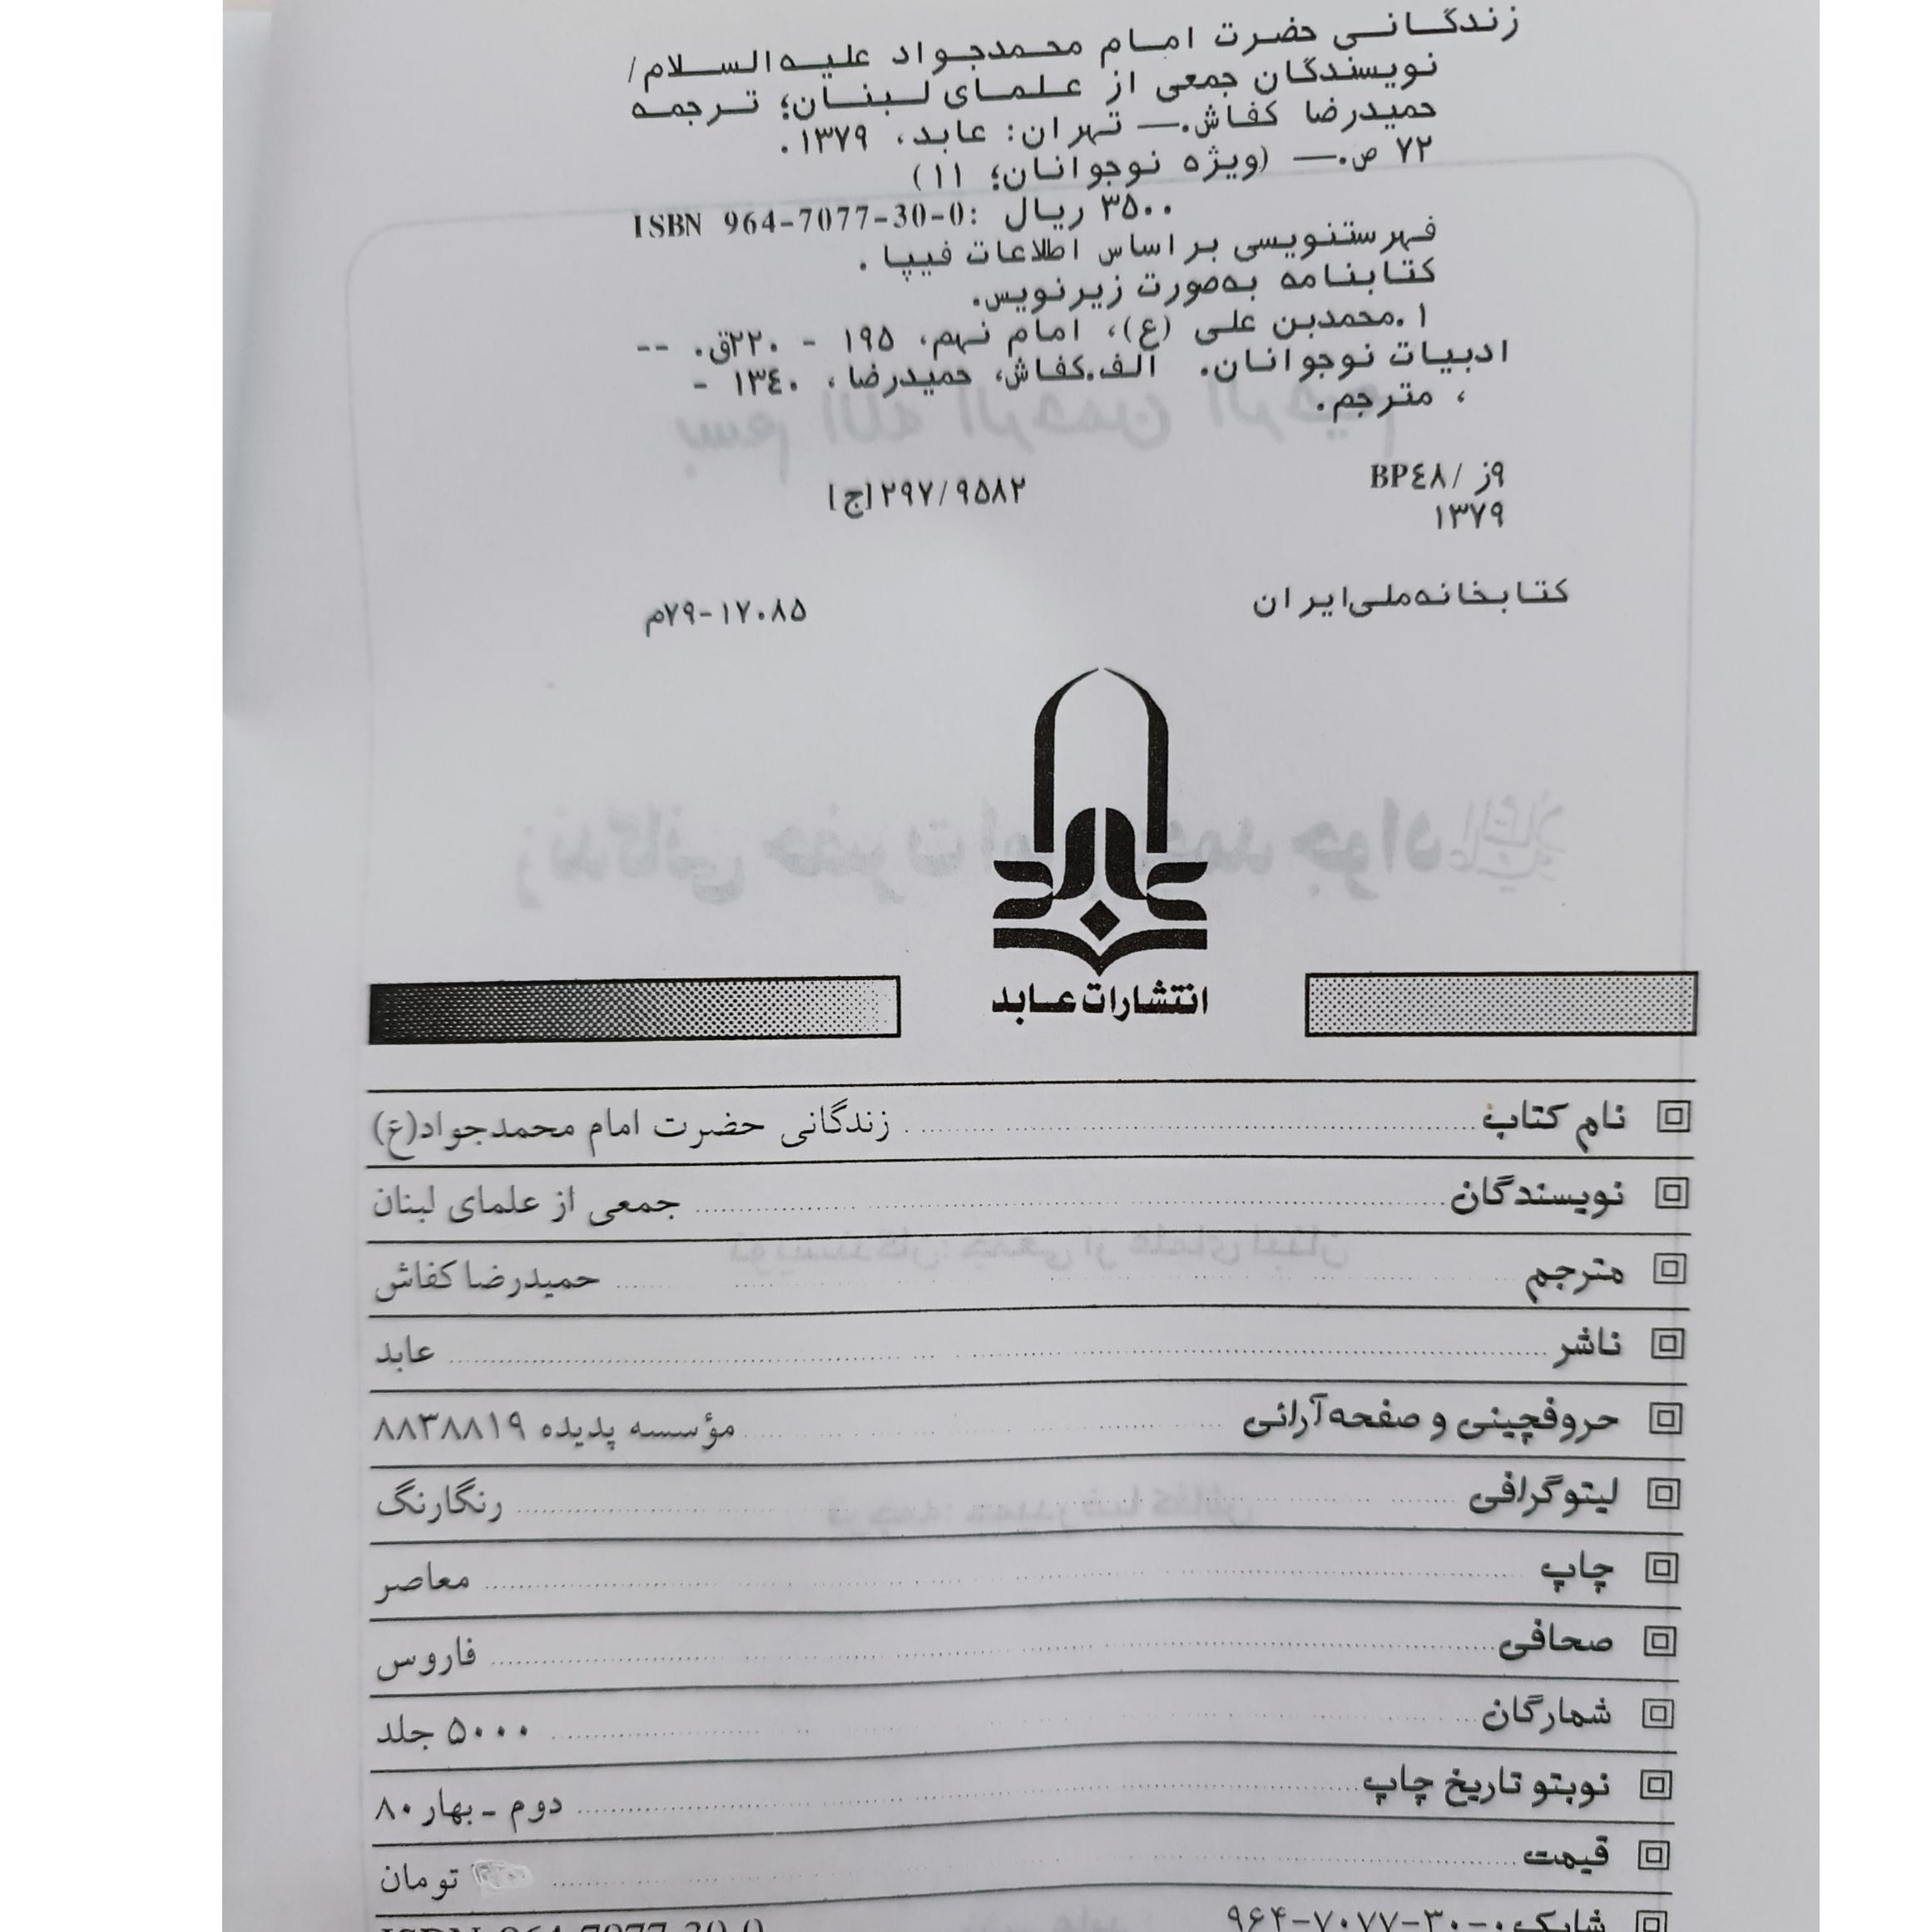 زندگانی حضرت امام محمدجواد علیه‌السلام/
نویسندگان جمعی از علمای لبنان؛ ترجمه
حمیدرضا کفاش.— تهران: عابد، ۱۳۷۹.
۷۲ ص.— (ویژه نوجوانان؛ ۱۱)
ISBN 964-7077-30-0: ۳۵۰۰ ریال
فهرستنویسی براساس اطلاعات فیپا.
کتابنامه به‌صورت زیرنویس.
۱.محمدبن علی (ع)، امام نهم، ۱۹۵ - ۲۲۰ق. --
ادبیات نوجوانان. الف.کفاش، حمیدرضا، ۱۳۴۰ -
، مترجم.
۹ز /BP۴۸ ۲۹۷/۹۵۸۲[ج]
۱۳۷۹
کتابخانه‌ملی‌ایران ۷۹-۱۷۰۸۵م
انتشارات عابد
نام کتاب زندگانی حضرت امام محمدجواد(ع)
نویسندگان جمعی از علمای لبنان
مترجم حمیدرضا کفاش
ناشر عابد
حروفچینی و صفحه‌آرائی مؤسسه پدیده ۸۸۳۸۸۱۹
لیتوگرافی رنگارنگ
چاپ معاصر
صحافی فاروس
شمارگان ۵۰۰۰ جلد
نوبتو تاریخ چاپ دوم ـ بهار ۸۰
قیمت تومان
شابک ۰-۳۰-۷۰۷۷-۹۶۴ ISBN 964-7077-30-0